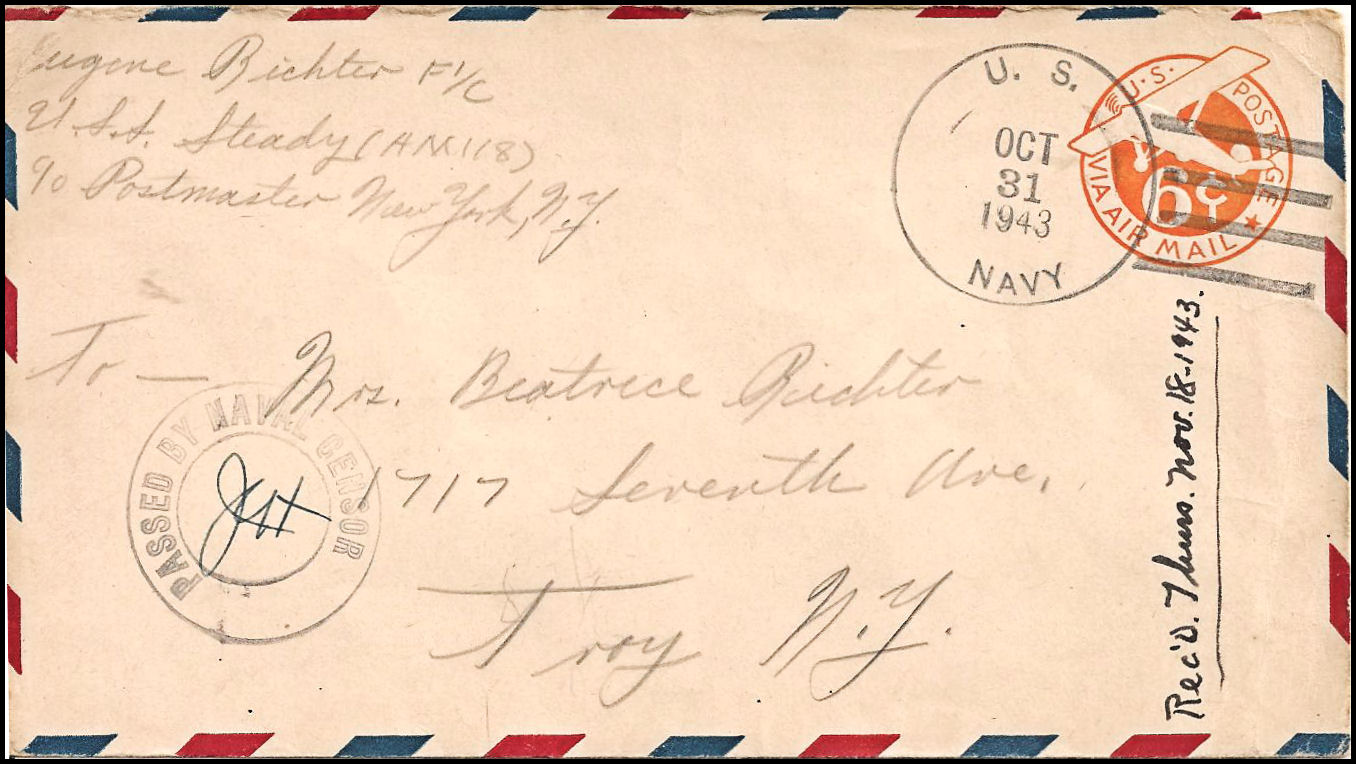 Eugene Richter F1/C
U.S.S. Steady (AM118)
c/o Postmaster New York, N.Y.
U. S.
OCT
31
1943
NAVY
U.S. POSTAGE
6¢
VIA AIR MAIL
To — Mrs. Beatrice Richter
1717 Seventh Ave.
Troy N.Y.
PASSED BY NAVAL CENSOR
Rec'd. Thurs. Nov. 18-1943.